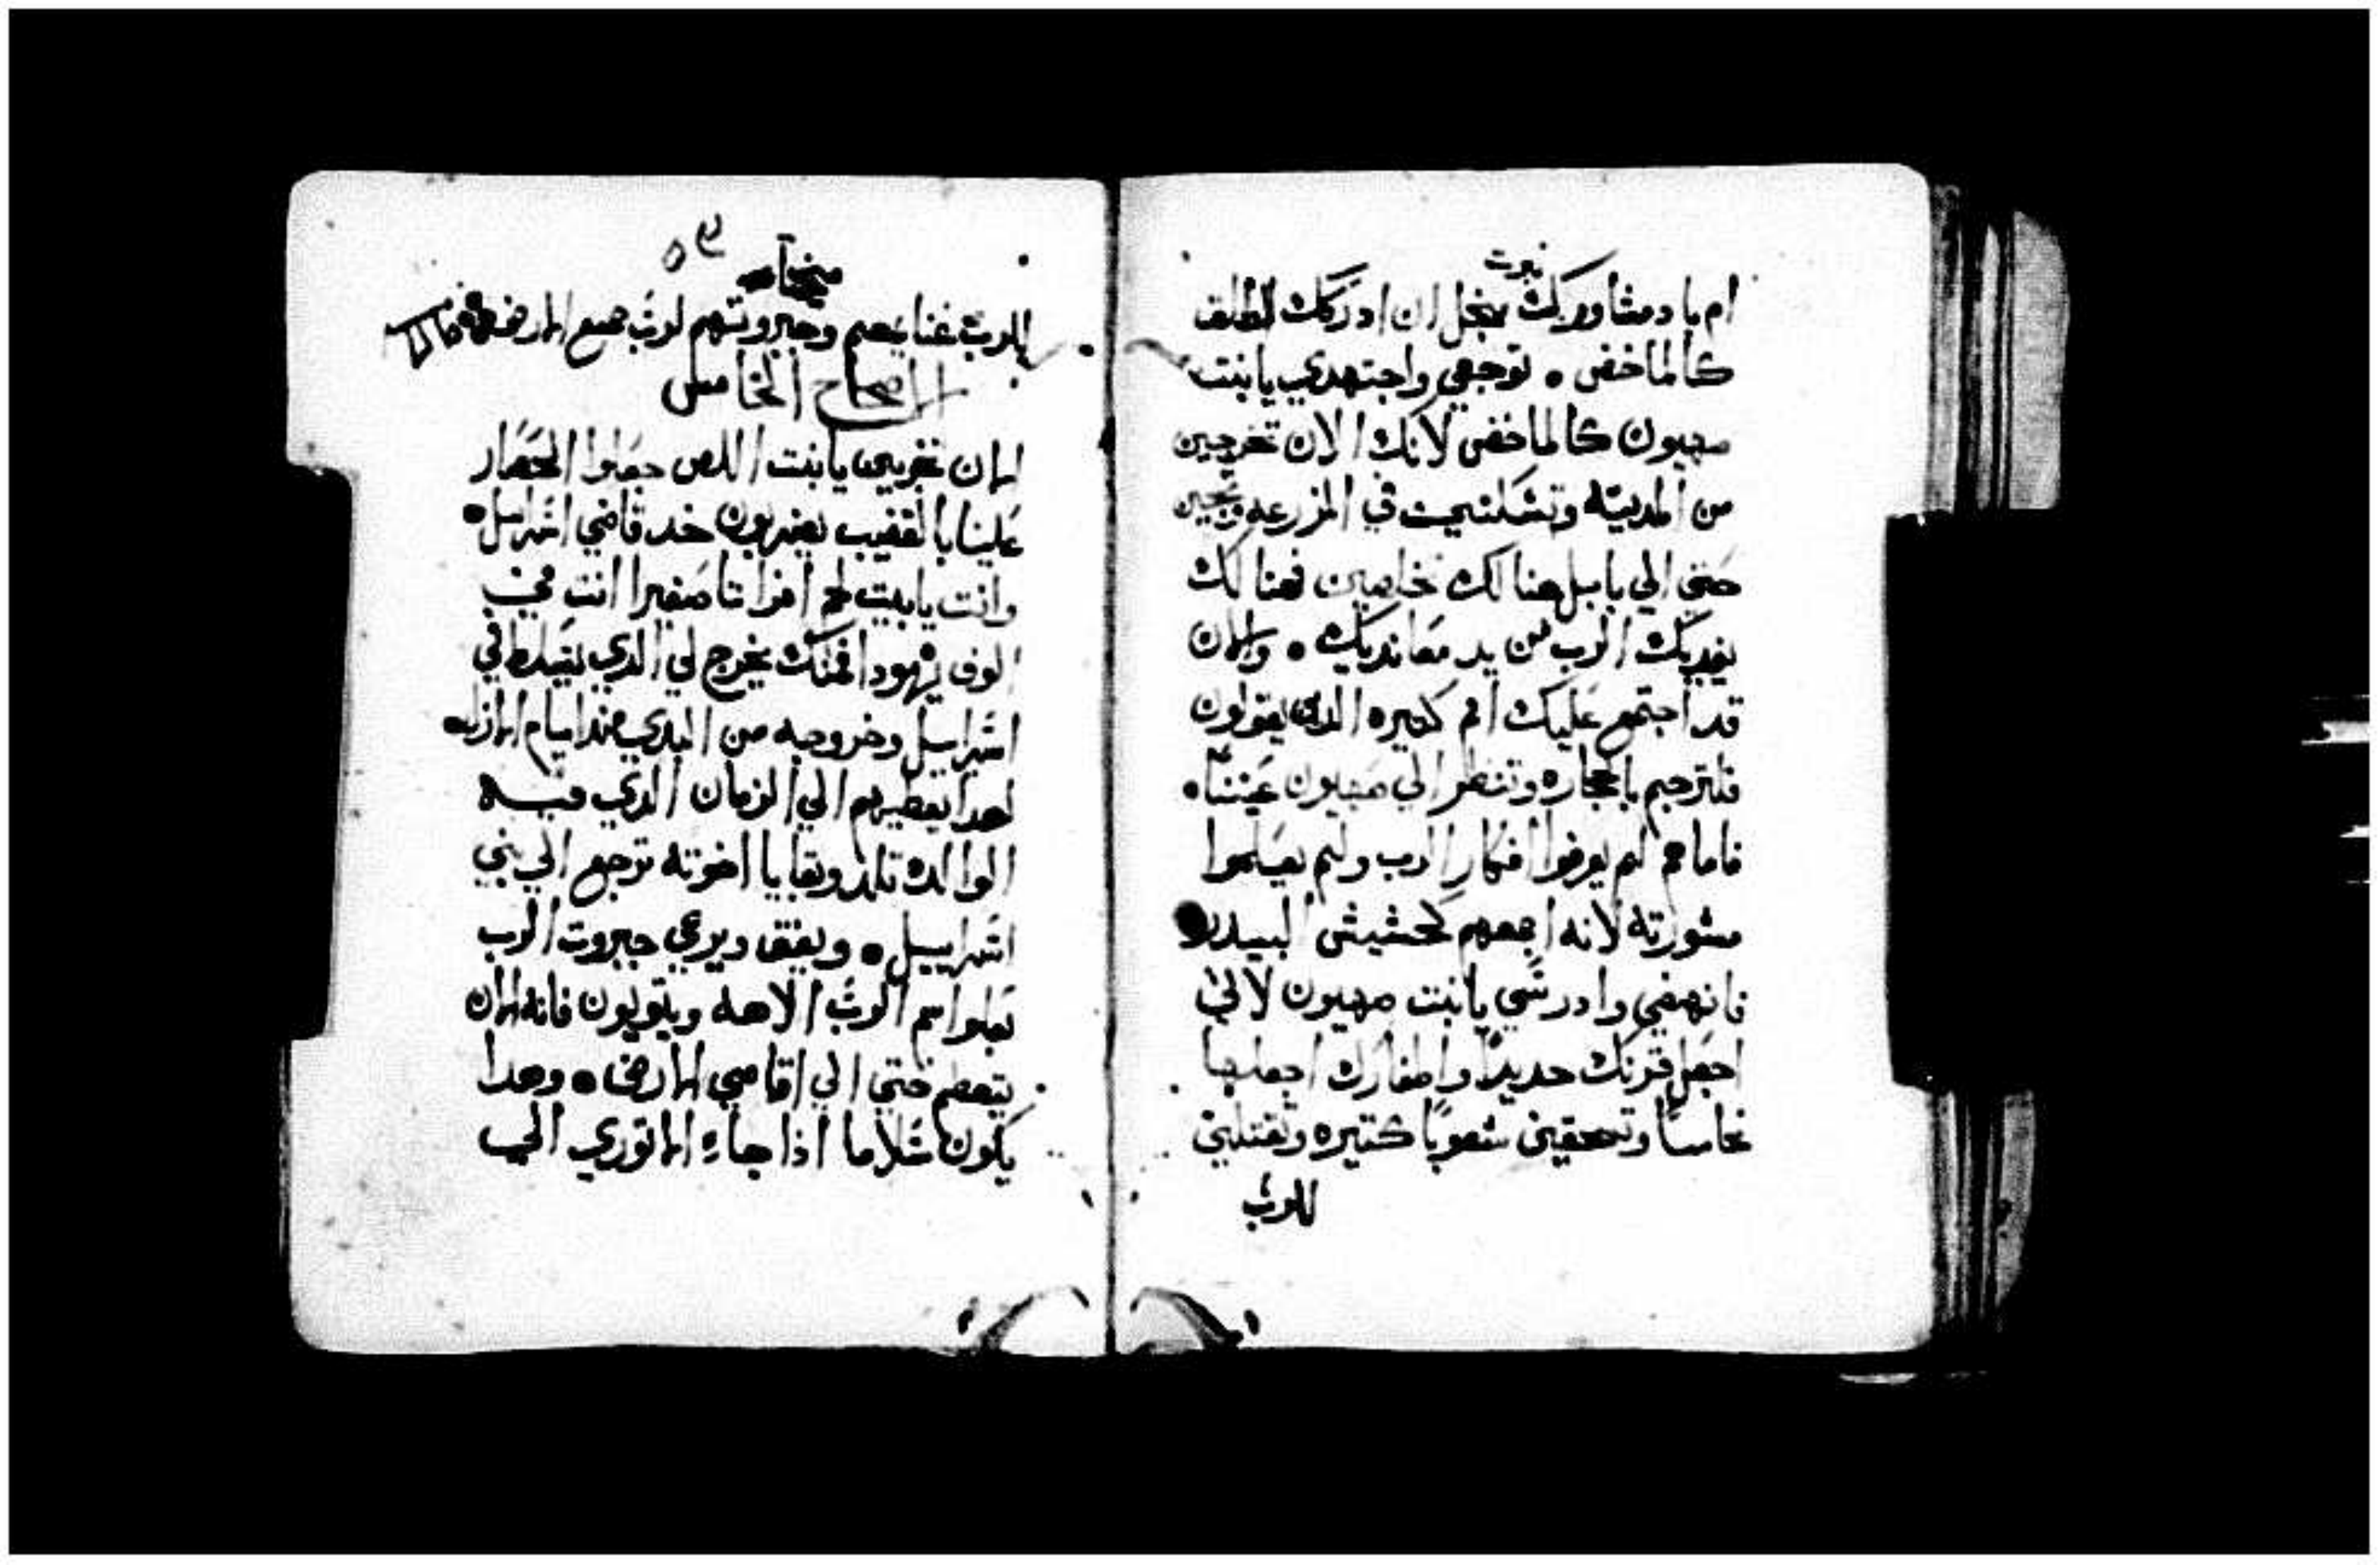 نبوت
ام باد مشاوريك من اجل ان ادركك الطلق
كالماخض • توجعي واجتهدي يا بنت
صهيون كالماخض لانك الان تخرجين
من المدينه وتسكنين في المزرعه وتجين
حتي الي بابل هنالك تخلصين فهنالك
يفديك الرب من يد معانديك • والان
قد اجتمع عليك امم كثيره الذين يقولون
فلترجم بالحجاره وتنظر الي صهيون عيننا •
فاما هم لم يعرفوا افكار الرب ولم يعلموا
مشورته لانه اجمعهم كحشيش البيدر
فانهضي وادرسي يا بنت صهيون لاني
اجعل قرنك حديدا واظفارك اجعلها
نحاسا وتسحقين شعوبا كتيره وتقتلين
للرب
ميخا
٥٤
للرب غنايمهم وجبروتهم لرب جميع الارض
الاصحاح الخامس
الان تخربين يا بنت اللص جعلوا الحصار
علينا بالقضيب يضربون خد قاضي اسراييل •
وانت يا بيت لحم افراتا صغيرا انت في
الوف يهودا فمنك يخرج لي الدي يتسلط في
اسراييل وخروجه من البدي مند ايام الازل •
لهدا يعطيهم الي الزمان الدي فيه
الوالده تلد وبقايا اخوته ترجع الي بني
اسراييل • ويقف ويرعي جبروت الرب
بعلو اسم الرب الاهه ويتوبون فانه الان
يتعظم حتي الي اقاصي الارض • وهدا
يكون سلاما اذا جاء الاتوري الي